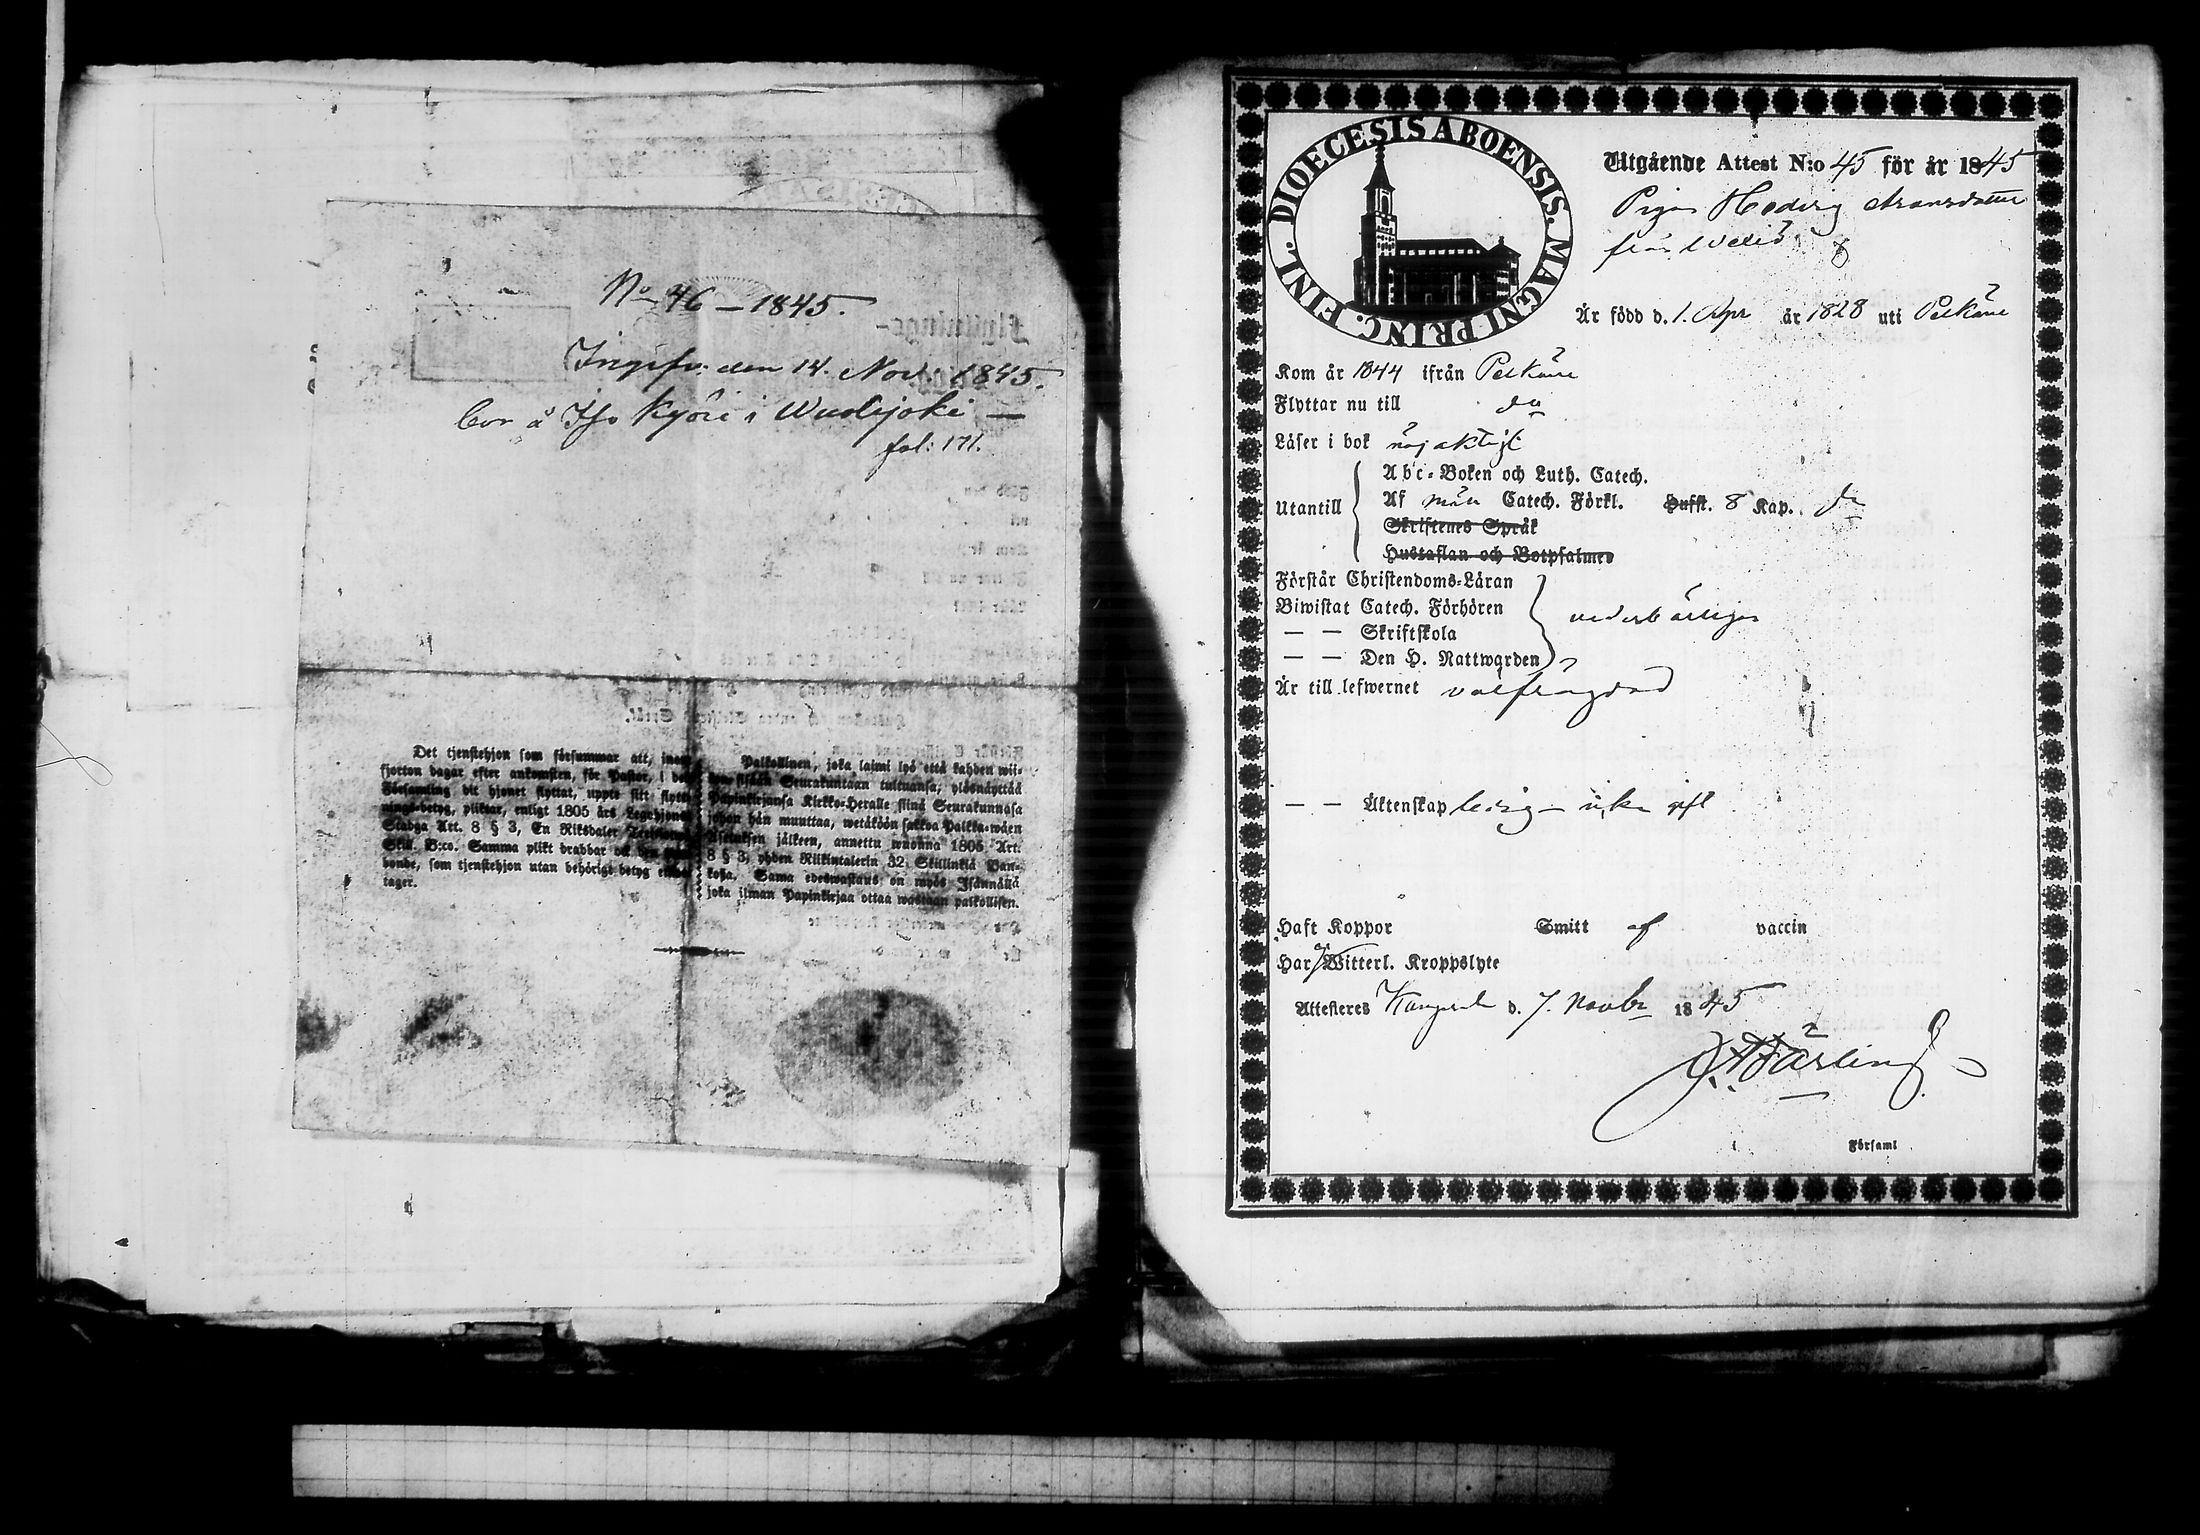 No 46 – 1845.
Ingifv. den 14. Nov: 1845.
bor å Iso Kyöri i Wuolijoki —
fol: 171.
Det tjenstehjon som försummar att, inom
fjorton dagar efter ankomsten, för Pastor, i den
Församling dit hjonet flyttat, uppte sitt flytt-
nings-betyg, pliktar, enligt 1805 års Legohjons
Stadga Art. 8 § 3, En Riksdaler
Skill. B:co. Samma plikt drabbar ock den
bonde, som tjenstehjon utan behörigt betyg
tager.
Palkollinen, joka laimi lyö että kahden wii-
kon sisään Seurakuntaan tultuansa, ylösnäyttää
Papinkirjansa Kirkko-Heralle siinä Seurakunnasa
johon hän muuttaa, wetäköön sakkoa Palkka-wäen
Asetuksen jälkeen, annettu wuonna 1805 Art.
8 § 3, yhden Riikintalerin 32 Skillinkiä Ban-
kosa. Sama edeswastaus on myös Isännällä
joka ilman Papinkirjaa ottaa wastaan palkollisen.
FINL. DIOECESIS ABOENSIS. MAGNI PRINC.
Utgående Attest N:o 45 för år 1845
Pigan Hedvig
från
Är född d. 1. Apr år 1828 uti Pelkäne
Kom år 1844 ifrån Pelkäne
Flyttar nu till do
Läser i bok nöjaktigt
Utantill
Abc-Boken och Luth. Catech.
Af Catech. Förkl. Hufst. 8 Kap. do
Skriftenes Språk
Hustaflan och Botpsalmer
Förstår Christendoms-Läran
Biwistat Catech. Förhören
— — Skriftskola
— — Den H. Nattwarden
vederbörligen
Är till lefwernet välfrägdad
— — Äktenskap ledig – icke gift
Haft Koppor Smitt af vaccin
Har ej Witterl. Kroppslyte
Attesteres d. 7. Novbr 1845
i Församl